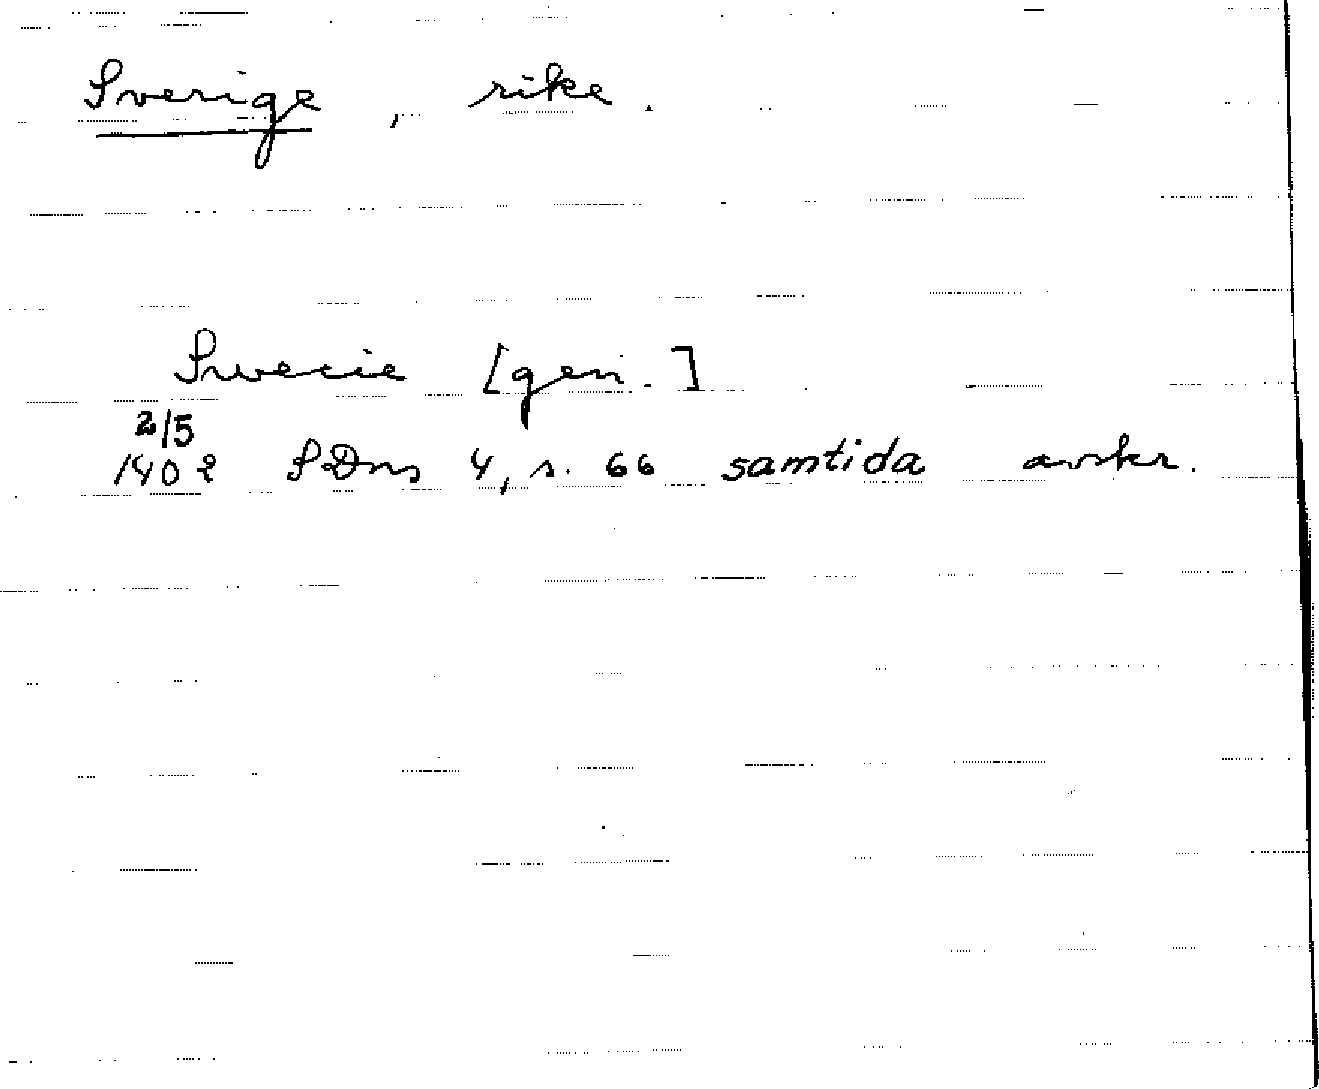 Sverige, rike.
Swecie [gen.]
2/5
1402 SDns 4, s. 66 samtida avskr.